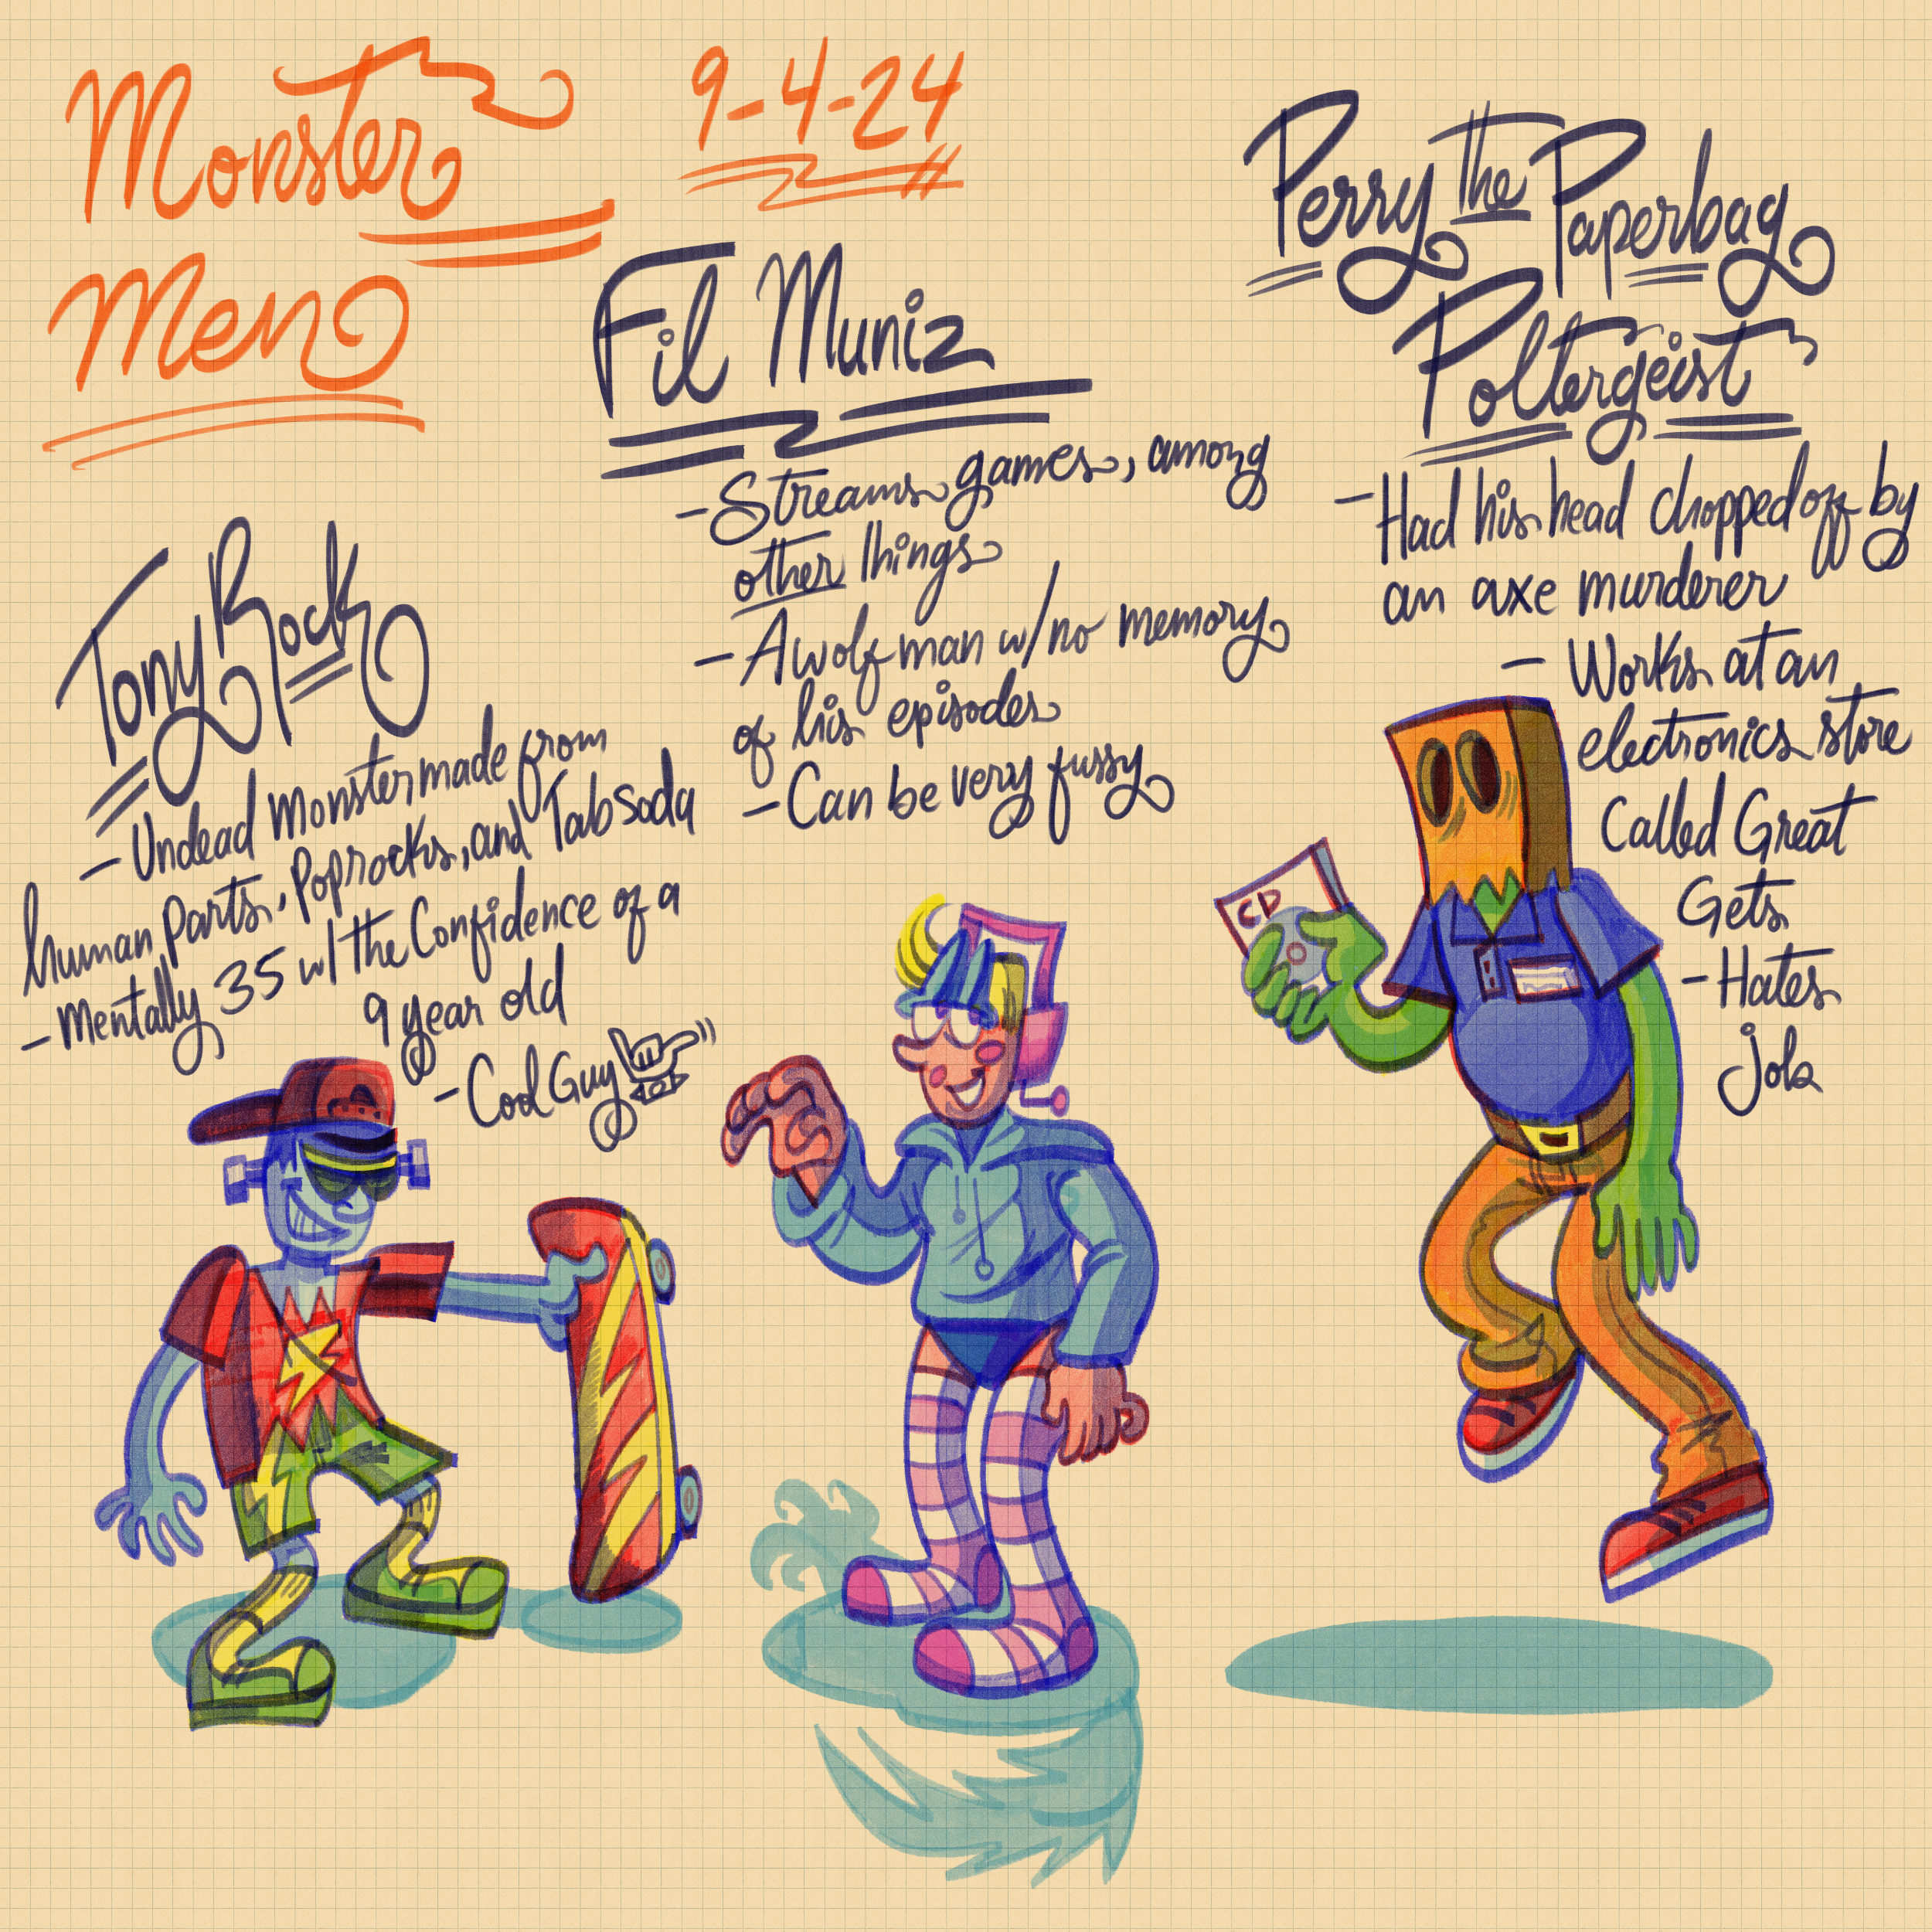 Monster
Men
9-4-24
Tony Rock
- Undead Monster made from
human parts, Poprocks, and Tab soda
- Mentally 35 w/ the Confidence of a
9 year old
- Cool Guy
Fil Muniz
- Streams games, among
other things
- A wolf man w/ no memory
of his episodes
- Can be very fussy
Perry the Paperbag
Poltergeist
- Had his head chopped off by
an axe murderer
- Works at an
electronics store
Called Great
Gets
- Hates
job
CD